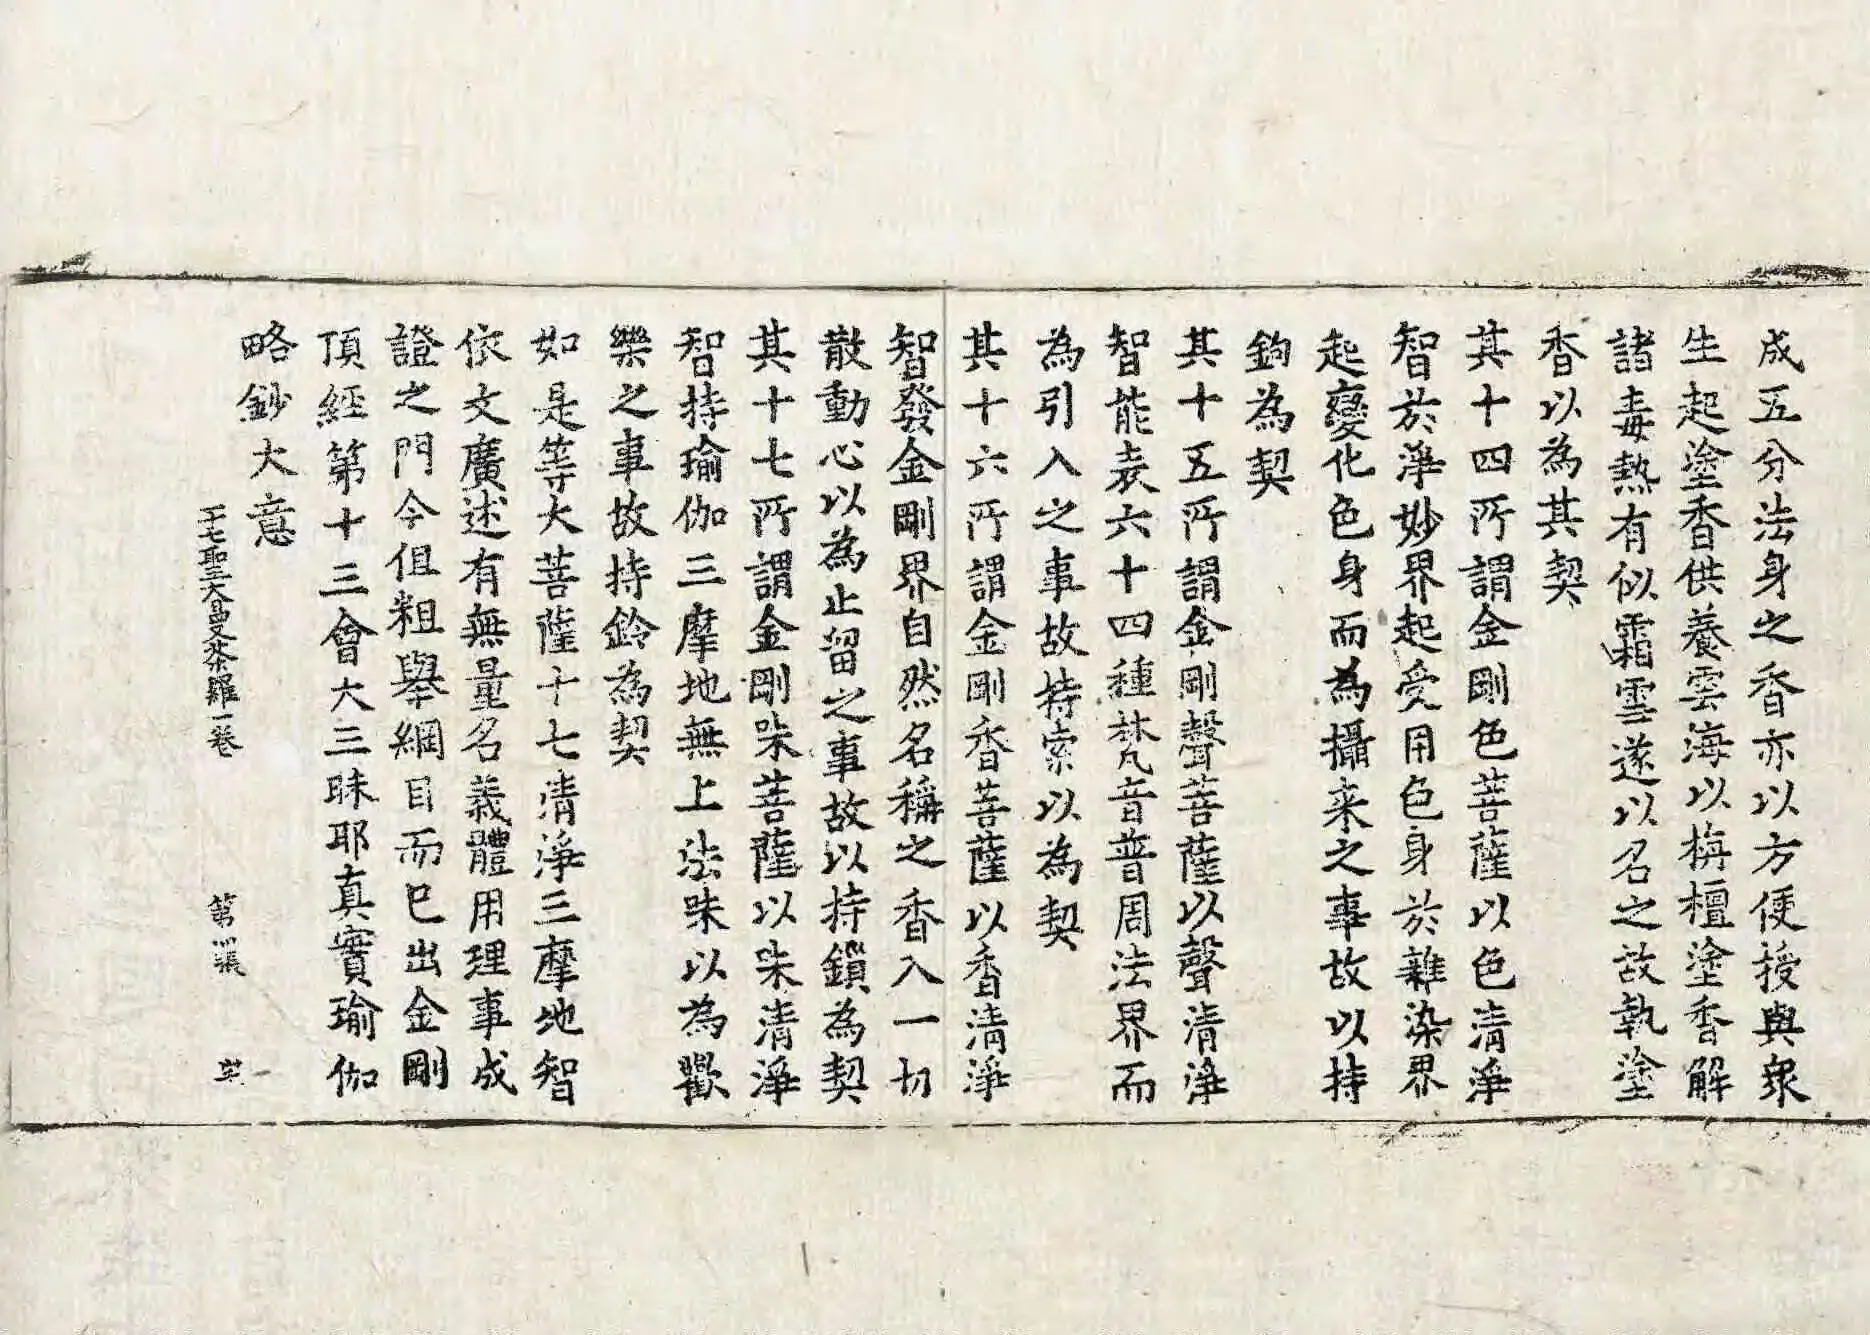 成五分法身之香亦以方便授與衆
生起塗香供養雲海以栴檀塗香解
諸毒熱有似霜雪遂以名之故執塗
香以為其契
其十四所謂金剛色菩薩以色清淨
智於淨妙界起受用色身於雜染界
起變化色身而為攝来之事故以持
鉤為契
其十五所謂金剛聲菩薩以聲清淨
智能表六十四種梵音普周法界而
為引入之事故持索以為契
其十六所謂金剛香菩薩以香清淨
智發金剛界自然名稱之香入一切
散動心以為止留之事故以持鎖為契
其十七所謂金剛味菩薩以味清淨
智持瑜伽三摩地無上法味以為歡
樂之事故持鈴為契
如是等大菩薩十七清淨三摩地智
依文廣述有無量名義體用理事成
證之門今但粗舉綱目而已出金剛
頂經第十三會大三昧耶真實瑜伽
略鈔大意
十七聖大曼荼羅一卷 第 張